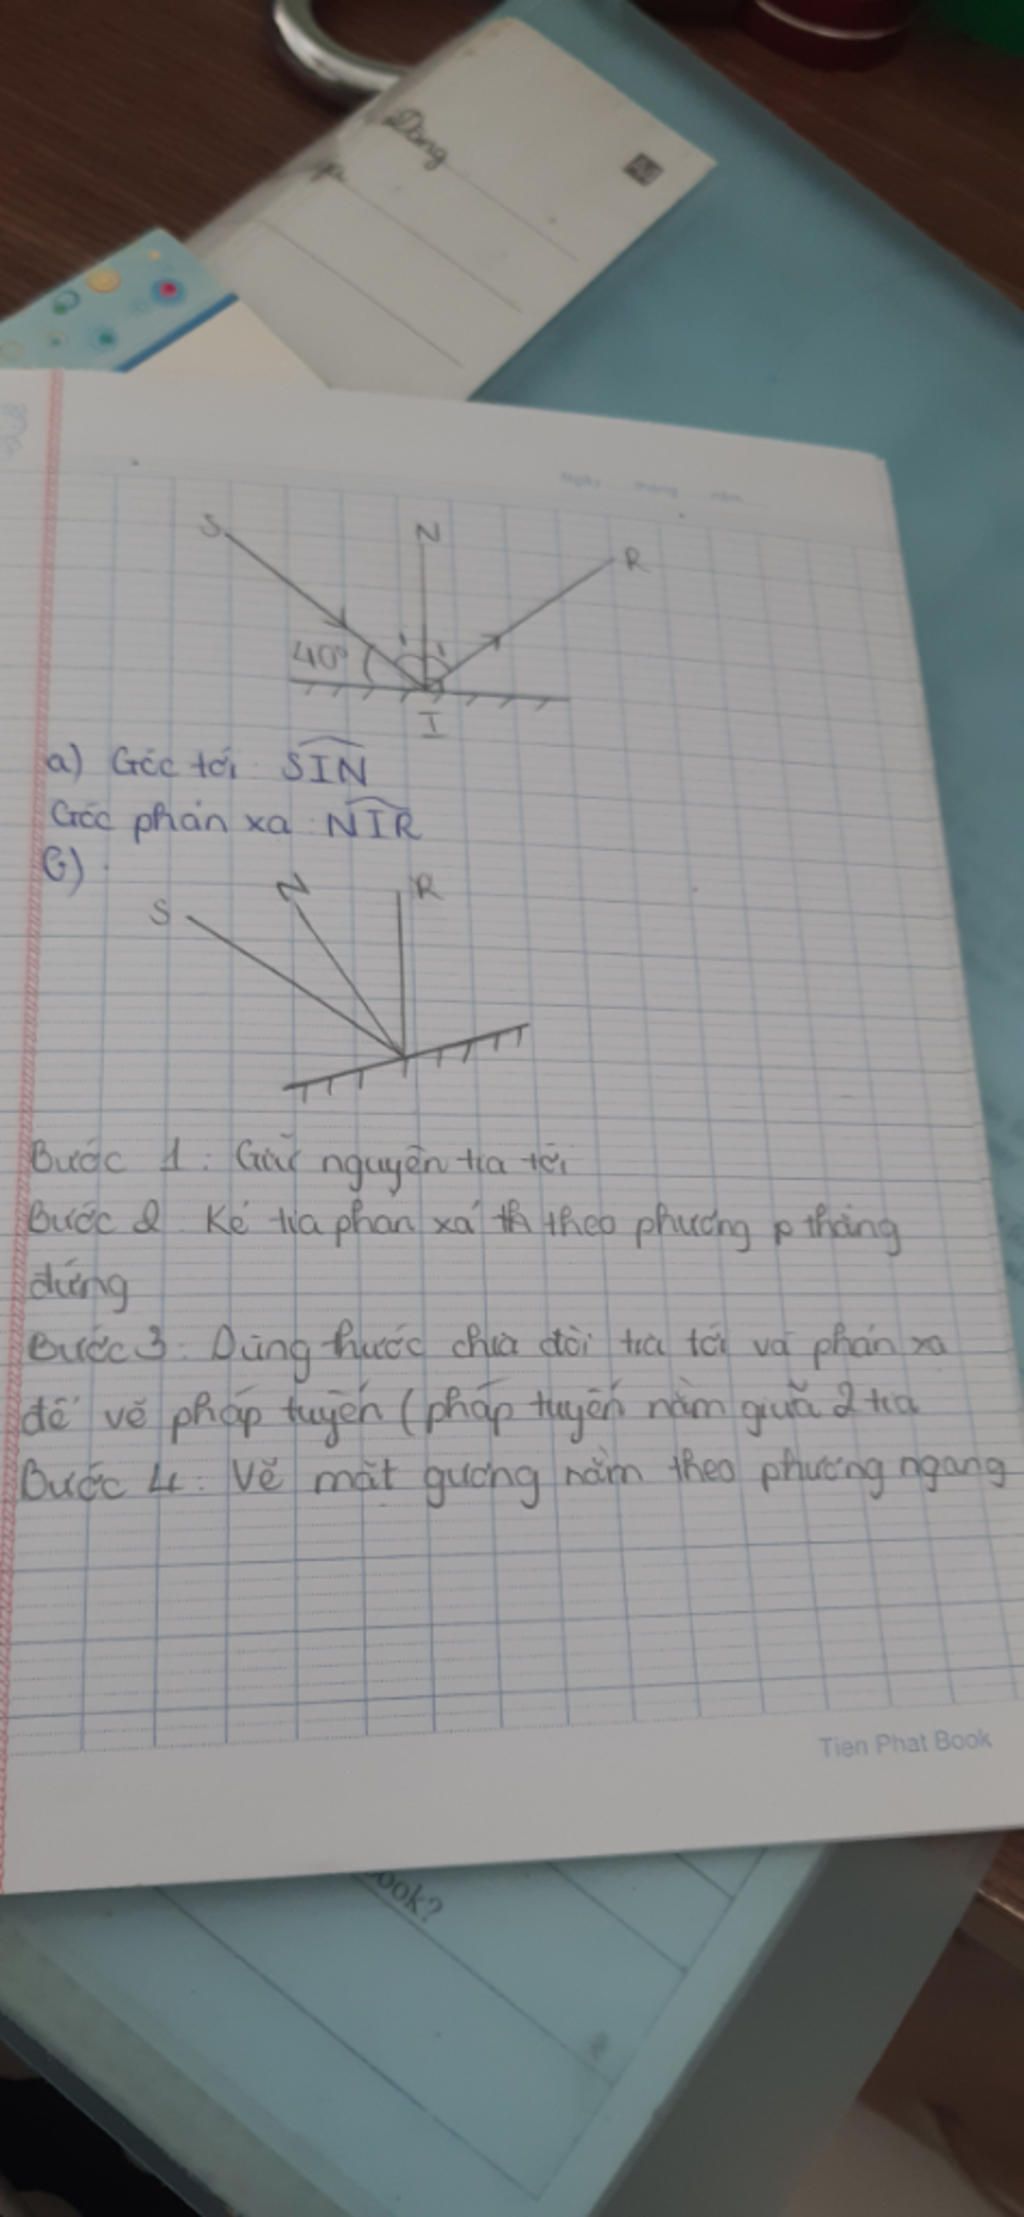 Dòng
Ngày tháng năm
S N R
40° i i'
I
a) Góc tới SIN
Góc phản xạ NIR
b)
S N R
Bước 1: Giữ nguyên tia tới
Bước 2 Kẻ tia phản xạ th theo phương p thẳng
đứng
Bước 3: Dùng thước chia đôi tia tới và phản xạ
để vẽ pháp tuyến (pháp tuyến nằm giữa 2 tia
Bước 4: Vẽ mặt gương nằm theo phương ngang
Tien Phat Book
ook?